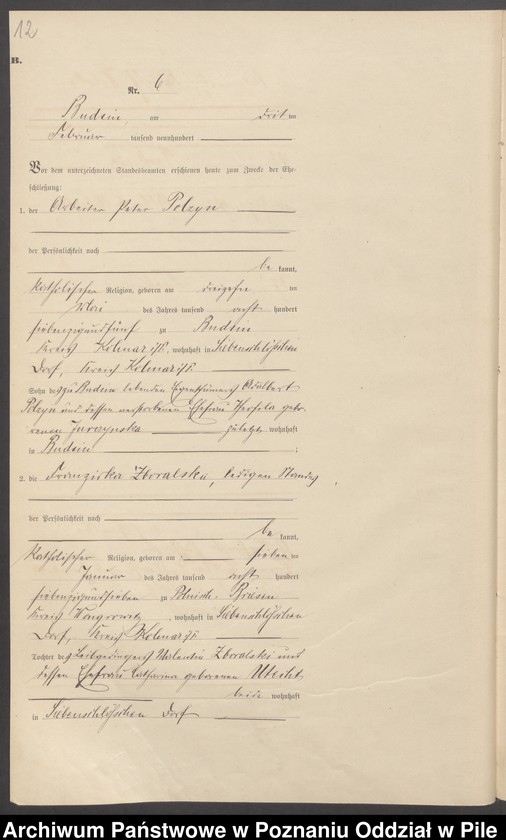 12
B.
Nr. 6
Budsin, am drit ten
Februar tausend neunhundert
Vor dem unterzeichneten Standesbeamten erschienen heute zum Zwecke der Ehe-
schließung:
1. der Arbeiter Peter Polzyn
der Persönlichkeit nach
be kannt,
katholischer Religion, geboren am dreizehn ten
Mai des Jahres tausend acht hundert
siebenzigundfünf zu Budsin
Kreis Kolmar i/P., wohnhaft in
Dorf, Kreis Kolmar i/P.
Sohn des zu Budsin lebenden Eigenthümers Adalbert
Polzyn und dessen verstorbenen Ehefrau Theofila gebo-
renen Jurczynska zuletzt wohnhaft
in Budsin ;
2. die Franziska Zboralska, ledigen Standes,
der Persönlichkeit nach
be kannt,
katholischer Religion, geboren am sieben ten
Januar des Jahres tausend acht hundert
siebenzigundsieben zu Polnisch-Briesen
Kreis Wongrowitz, wohnhaft in
Dorf, Kreis Kolmar i/P.
Tochter des Leibgedingers Valentin Zboralski und
dessen Ehefrau Catharina geborenen Utecht
beide wohnhaft
in Dorf
Archiwum Państwowe w Poznaniu Oddział w Pile